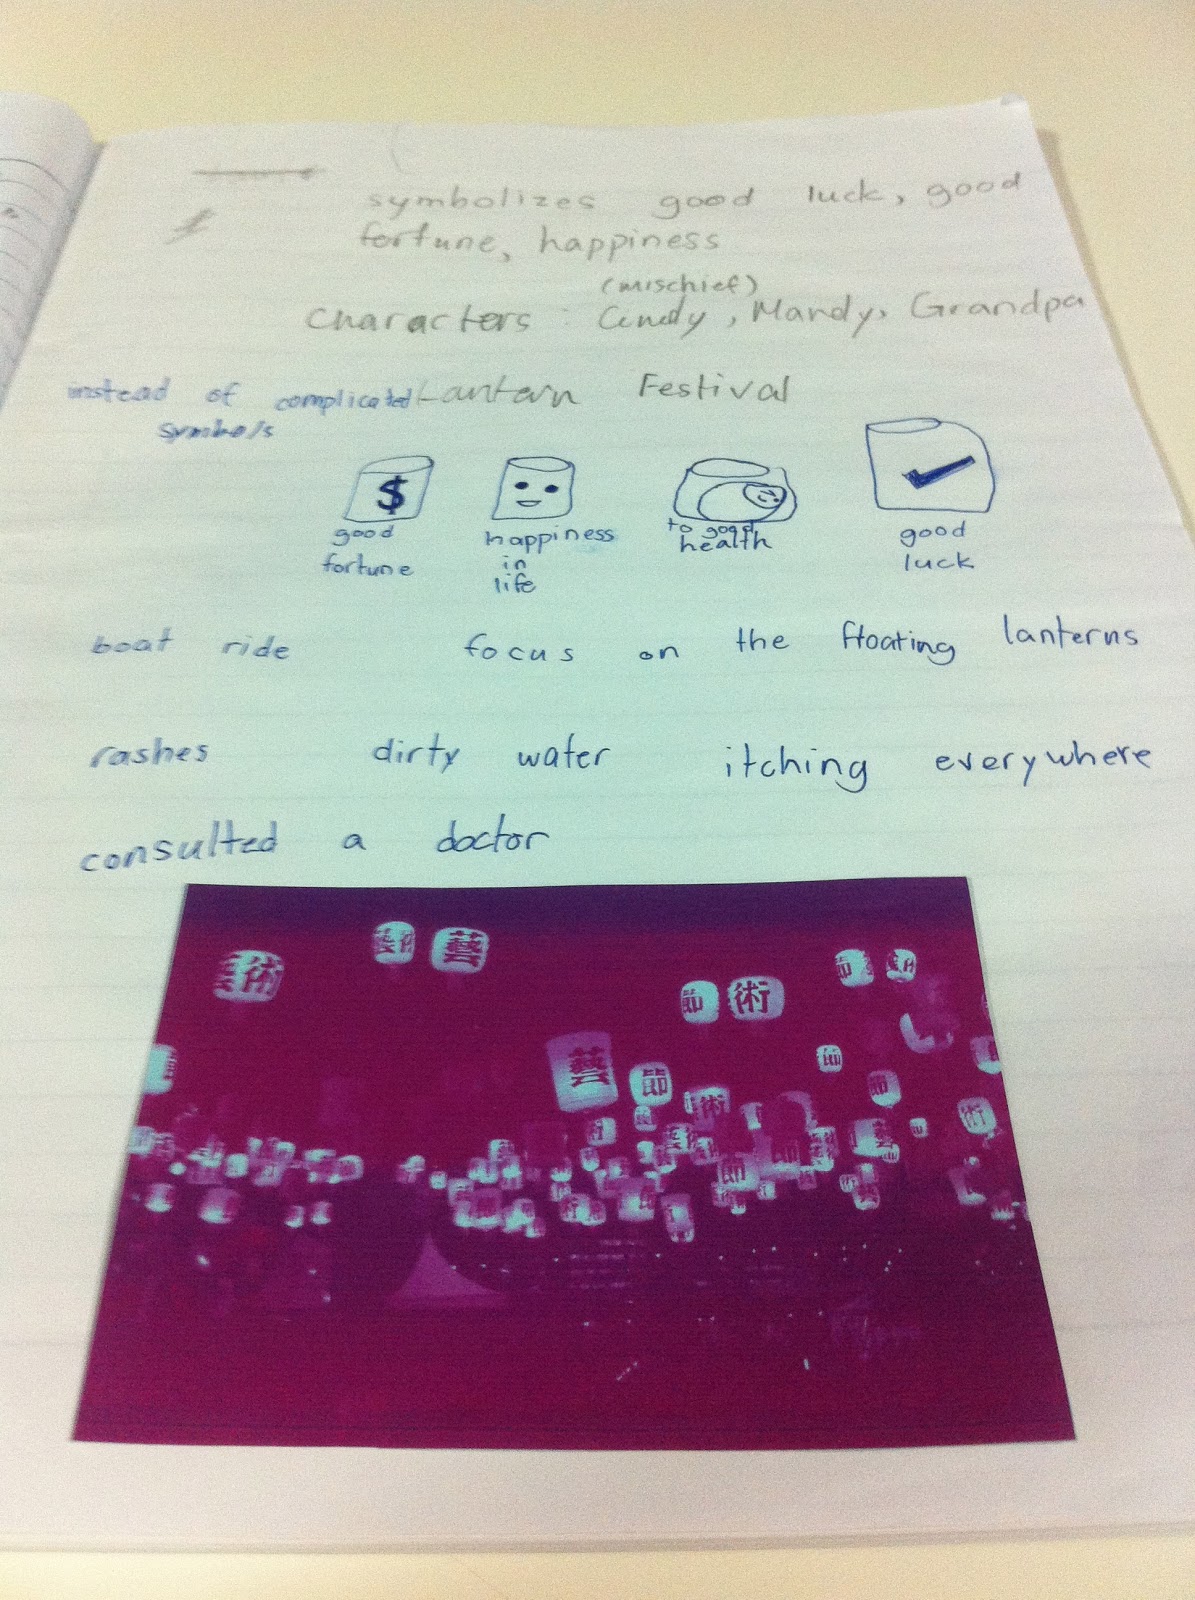 symbolizes good luck, good
fortune, happiness
(mischief)
Characters : Cindy, Mandy, Grandpa
instead of complicated
symbols
Lantern Festival
$
good
fortune
happiness
in
life
to good
health
good
luck
boat ride focus on the floating lanterns
rashes dirty water itching everywhere
consulted a doctor
藝術
藝
術
節
術
節
藝
節
術
節
節
術
節